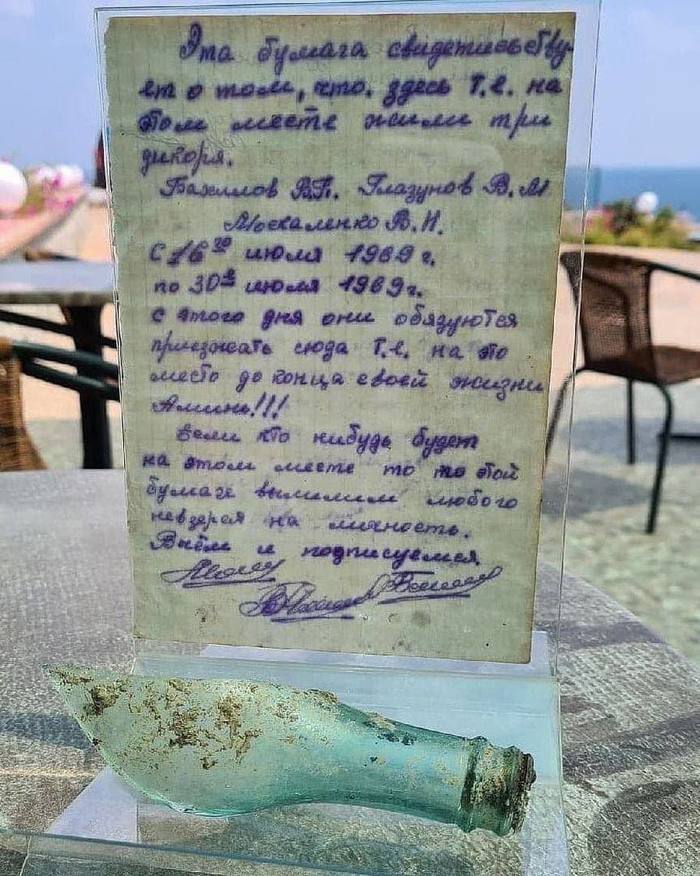 Эта бумага свидетельству
ет о том, что. здесь т.е. на
этом месте жили три
дикоря.
Бахилов В.П. Глазунов В.М
Москаленко В.И.
С 16го июля 1969 г.
по 30е июля 1969г.
с этого дня они обязуются
приезжать сюда т.е. на это
место до конца своей жизни
Аминь!!!
Если кто нибудь будет
на этом месте то по этой
бумаге выпишим любого
невзерая на личность.
В чём и подписуемся